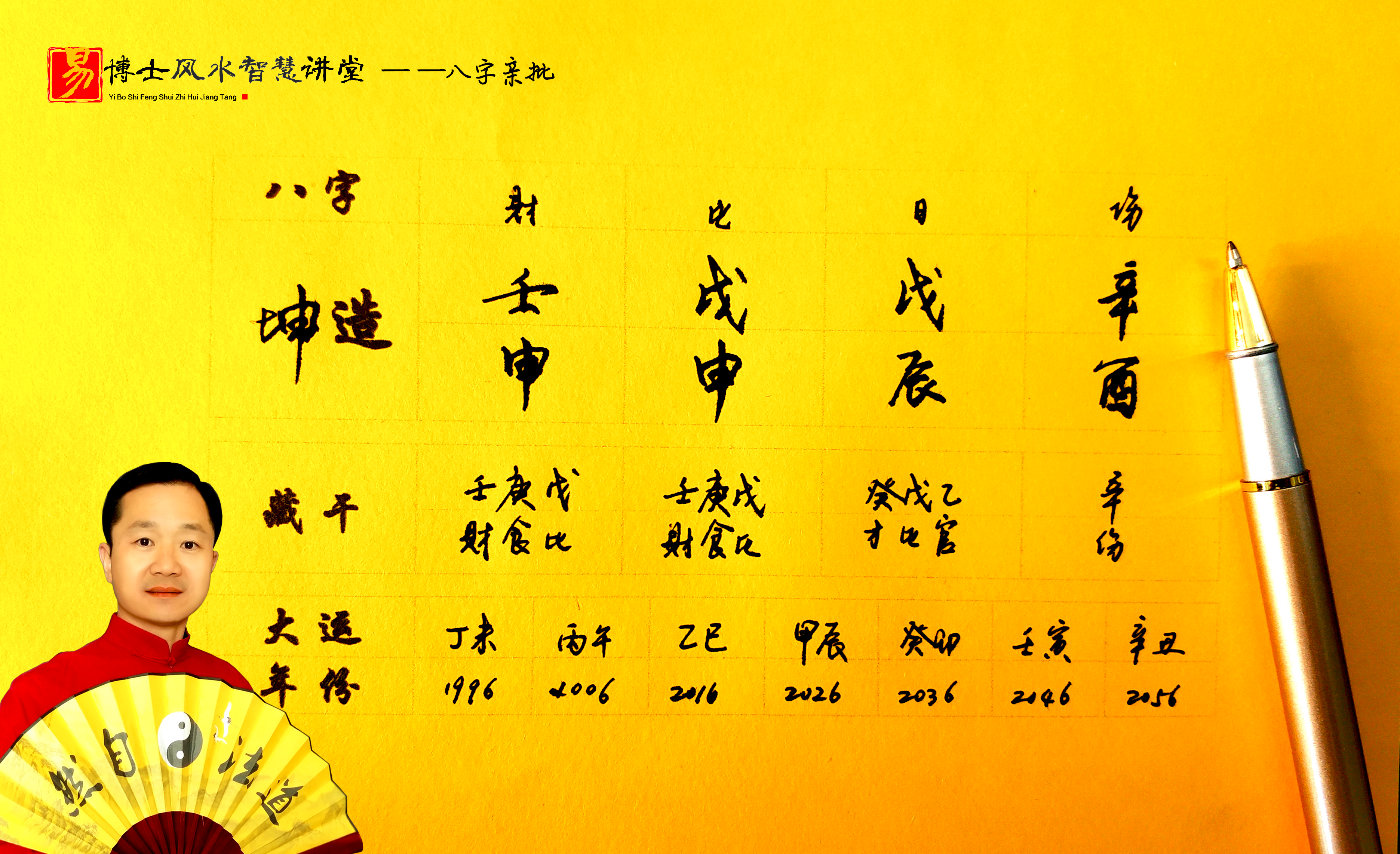 易博士风水智慧讲堂 ——八字亲批
Yi Bo Shi Feng Shui Zhi Hui Jiang Tang
八字 财 比 日 伤
坤造 壬 戊 戊 辛
申 申 辰 酉
藏干 壬庚戊 壬庚戊 癸戊乙 辛
财食比 财食比 才比官 伤
大运 丁未 丙午 乙巳 甲辰 癸卯 壬寅 辛丑
年份 1996 2006 2016 2026 2036 2046 2056
道法自然